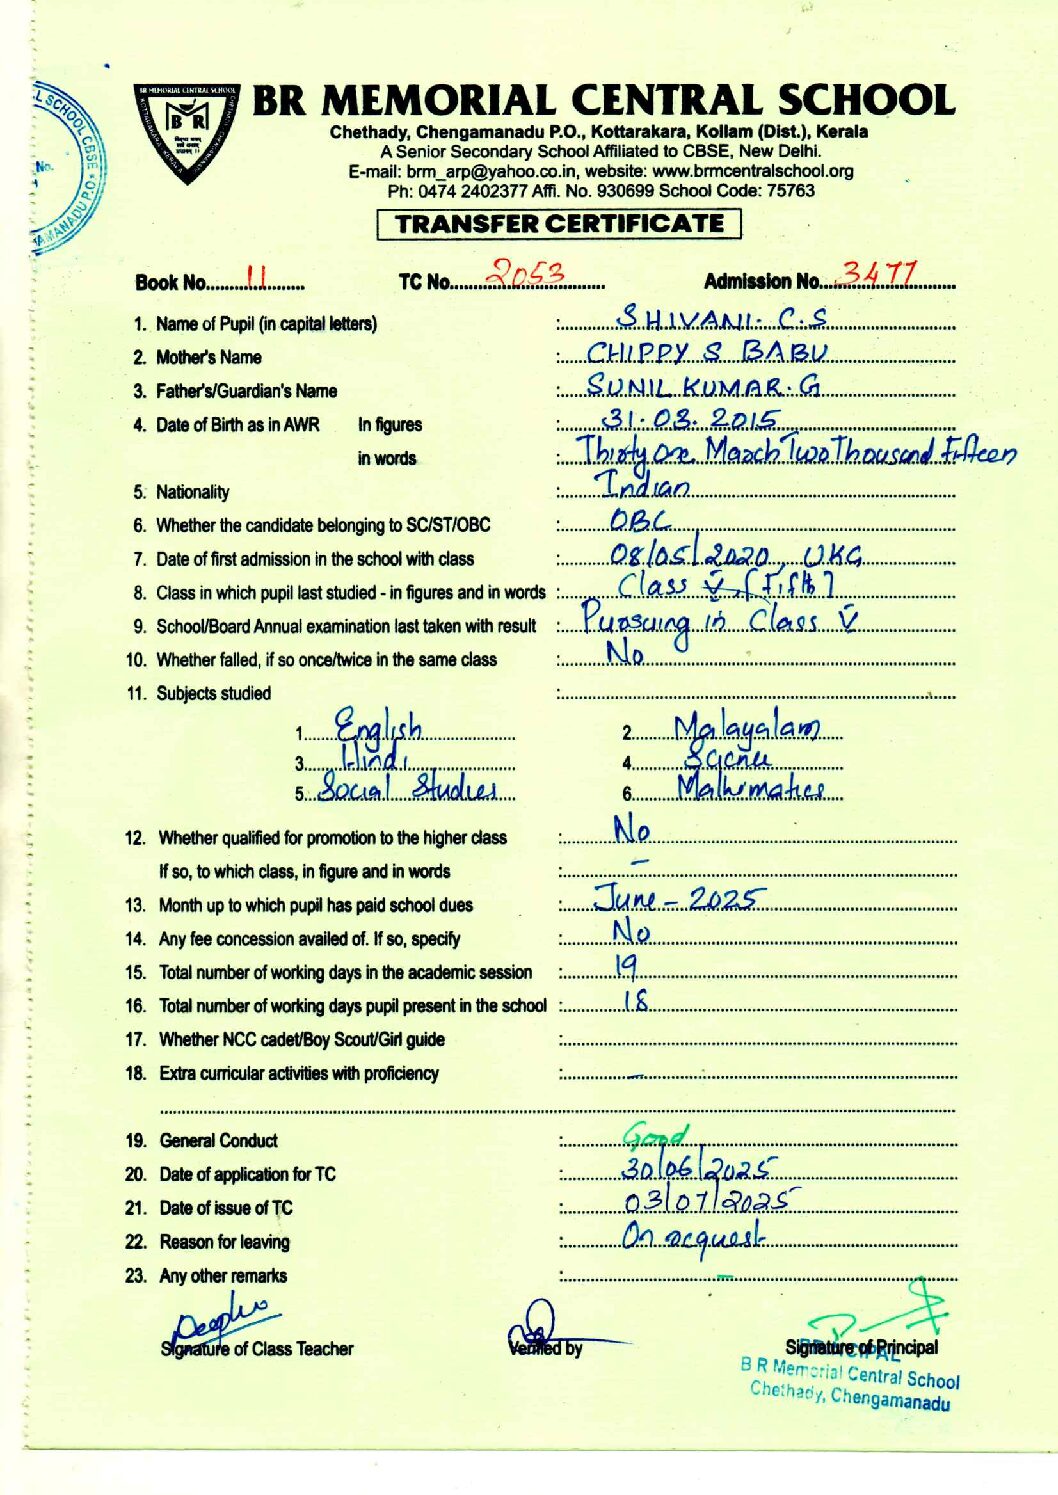 BR MEMORIAL CENTRAL SCHOOL
Chethady, Chengamanadu P.O., Kottarakara, Kollam (Dist.), Kerala
A Senior Secondary School Affiliated to CBSE, New Delhi.
E-mail: brm_arp@yahoo.co.in, website: www.brmcentralschool.org
Ph: 0474 2402377 Affi. No. 930699 School Code: 75763
TRANSFER CERTIFICATE
Book No. 11 TC No. 2053 Admission No. 3477
1. Name of Pupil (in capital letters) : SHIVANI. C.S
2. Mother's Name : CHIPPY S BABU
3. Father's/Guardian's Name : SUNIL KUMAR. G
4. Date of Birth as in AWR In figures : 31.03.2015
in words : Thirty One March Two Thousand Fifteen
5. Nationality : Indian
6. Whether the candidate belonging to SC/ST/OBC : OBC
7. Date of first admission in the school with class : 08/05/2020, UKG
8. Class in which pupil last studied - in figures and in words : Class V [Fifth]
9. School/Board Annual examination last taken with result : Pursuing in Class V
10. Whether falled, if so once/twice in the same class : No
11. Subjects studied :
1. English 2. Malayalam
3. Hindi 4. Science
5. Social Studies 6. Mathematics
12. Whether qualified for promotion to the higher class : No
If so, to which class, in figure and in words : -
13. Month up to which pupil has paid school dues : June - 2025
14. Any fee concession availed of. If so, specify : No
15. Total number of working days in the academic session : 19
16. Total number of working days pupil present in the school : 18
17. Whether NCC cadet/Boy Scout/Girl guide :
18. Extra curricular activities with proficiency : -
19. General Conduct : Good
20. Date of application for TC : 30/06/2025
21. Date of issue of TC : 03/07/2025
22. Reason for leaving : On request
23. Any other remarks : -
Signature of Class Teacher Verified by Signature of Principal
PRINCIPAL
B R Memorial Central School
Chethady, Chengamanadu